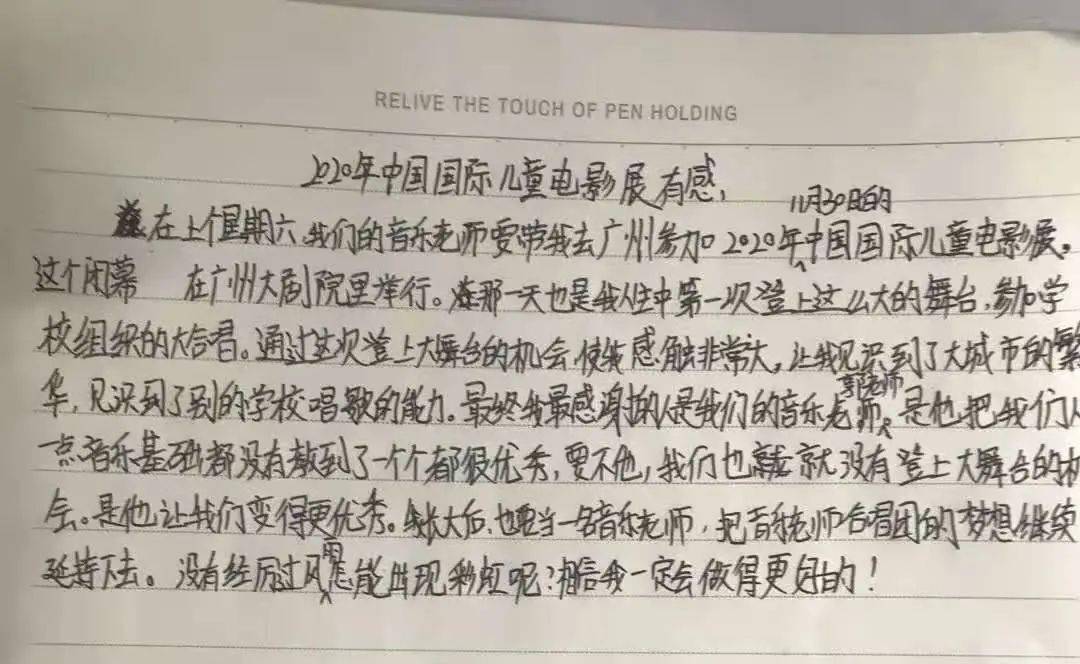 RELIVE THE TOUCH OF PEN HOLDING
2020年中国国际儿童电影展有感,
11月30日的
在上个星期六,我们的音乐老师要带我去广州参加2020年中国国际儿童电影展。
这个闭幕 在广州大剧院里举行。在那一天也是我人生中第一次登上这么大的舞台,参加学
校组织的大合唱。通过这次登上大舞台的机会,使我感触非常大,让我见识到了大城市的繁
郭老师
华,见识到了别的学校唱歌的能力。最终我最感谢的人是我们的音乐老师,是他把我们从
一点音乐基础都没有教到了一个个都很优秀,要不他,我们也就没有登上大舞台的机
会。是他让我们变得更优秀。我长大后,也要当一名音乐老师,把音乐老师合唱团的梦想继续
雨
延持下去。没有经历过风怎能出现彩虹呢?相信我一定会做得更好的!